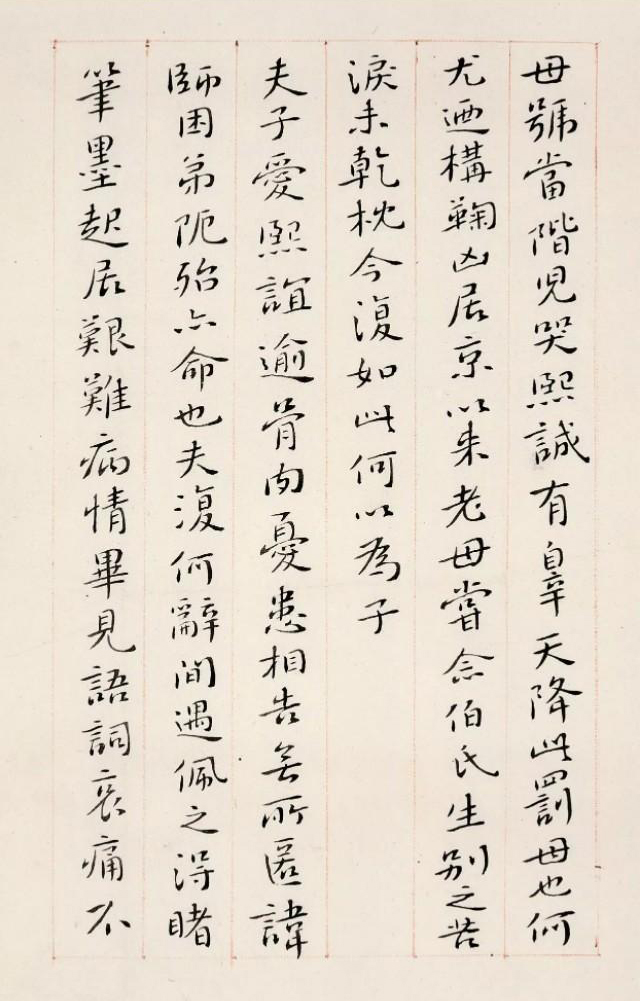 母號當階兒哭熙誠有辠天降此罰母也何
尤迺構鞠凶居京以來老母嘗念伯氏生別之苦
淚未乾枕今復如此何以為子
夫子愛熙誼逾骨肉憂患相告無所匿諱
師困弟阨殆亦命也夫復何辭間遇佩之得睹
筆墨起居艱難病情畢見語詞哀痛不